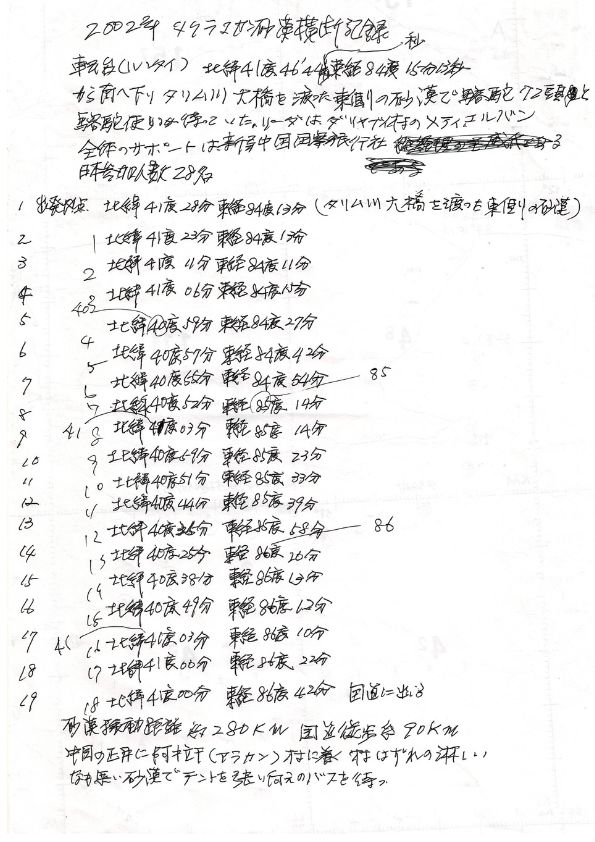 2002年 タクラマカン砂漠横断記録
輪台(ルンタイ) 北緯41度46'44 東経84度15分13秒 秒
から南へ下り タリム川大橋を渡った東側の砂漠で駱駝72頭と
駱駝使いが待っていた。リーダはダリヤブイ村のメティエルバン
全体のサポートは新疆中国国際旅行社
日本参加人数28名
1 出発地点 北緯41度28分 東経84度13分 (タリム川大橋を渡った東側の砂漠)
2 1 北緯41度23分 東経84度13分
3 2 北緯41度11分 東経84度11分
4 3 北緯41度06分 東経84度15分
5 4 北緯40度59分 東経84度27分
6 5 北緯40度57分 東経84度42分
7 6 北緯40度55分 東経84度54分 85
8 7 北緯40度52分 東経85度14分
9 41 8 北緯41度03分 東経85度14分
10 9 北緯40度59分 東経85度23分
11 10 北緯40度51分 東経85度33分
12 11 北緯40度44分 東経85度39分
13 12 北緯40度35分 東経85度58分 86
14 13 北緯40度25分 東経86度10分
15 14 北緯40度38分 東経86度13分
16 15 北緯40度49分 東経86度12分
17 41 16 北緯41度03分 東経86度10分
18 17 北緯41度00分 東経86度22分
19 18 北緯41度00分 東経86度42分 国道に出る
砂漠移動距離 約280KM 国道徒歩 約90KM
中国の正月に阿拉干(アラカン)村に着く 村はずれの淋しい
なが悪い砂漠でテントを張り迎えのバスを待つ